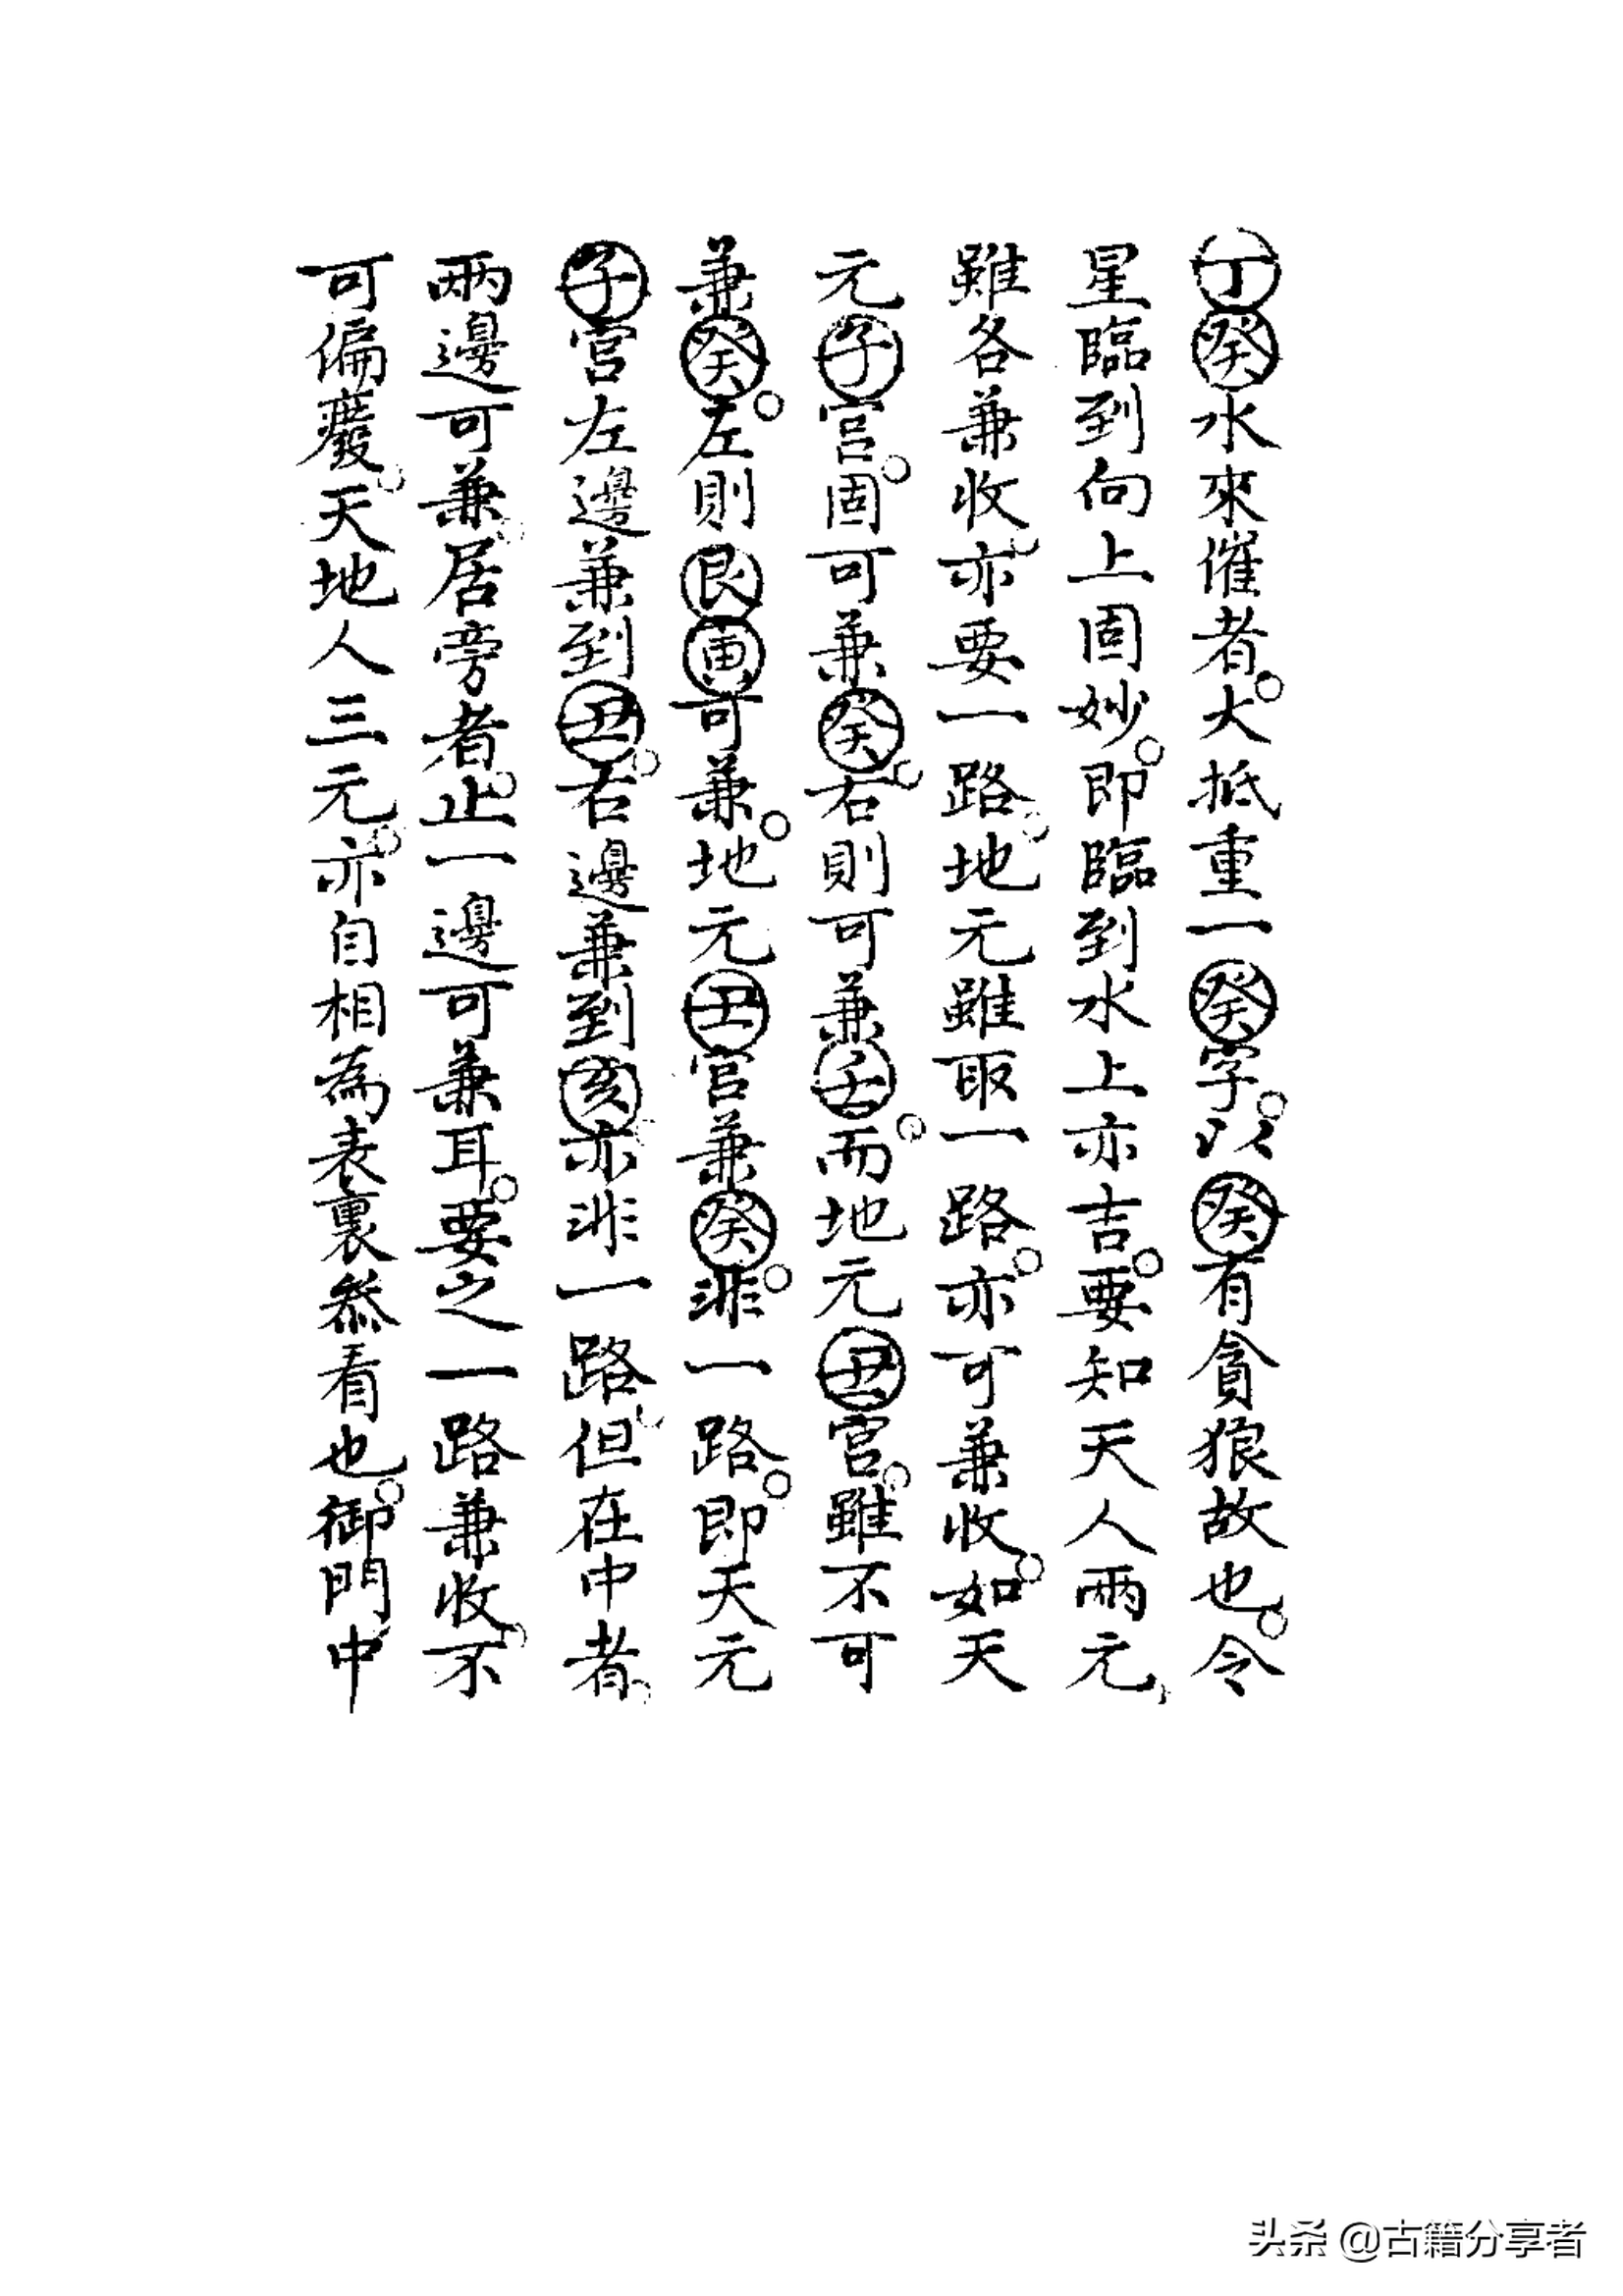 丁癸水來催者。大抵重一癸字。以癸有貪狼故也。令
星臨到向上固妙。即臨到水上亦吉。要知天人兩元。
雖各兼收。亦要一路。地元雖取一路。亦可兼收。如天
元子宮。固可兼癸。右則可兼壬。而地元丑宮。雖不可
兼癸。左則艮寅可兼。地元丑宮兼癸。非一路。即天元
子宮左邊兼到丑。右邊兼到亥。亦非一路。但在中者。
兩邊可兼。居旁者。止一邊可兼耳。要之一路兼收。不
可偏廢。天地人三元。亦自相為表裏叅看也。御門中
头条 @古籍分享者